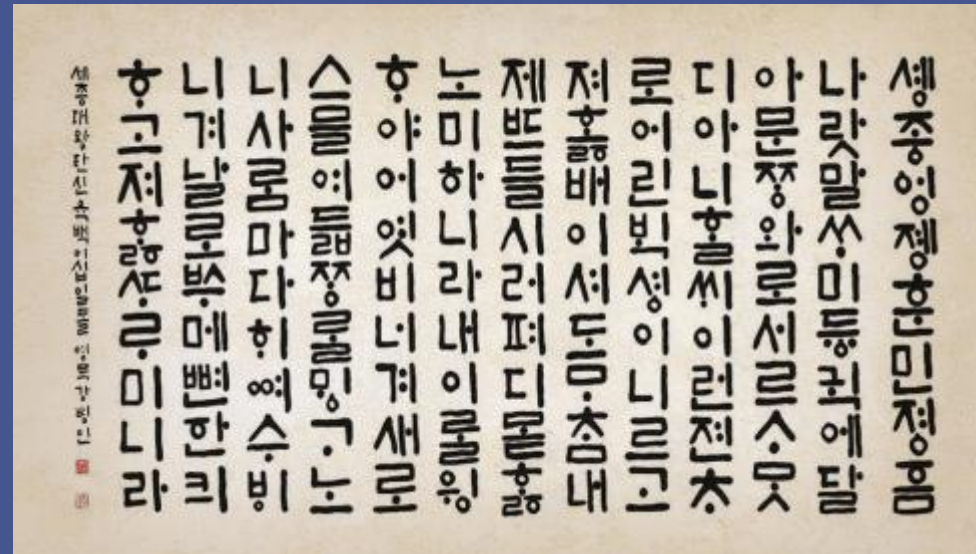 솅종엉졩훈민졍ᅙᅳᆷ
나랏말ᄊᆞ미듕귁에달
아문ᄍᆞᆼ와로서르ᄉᆞᄆᆞᆺ
디아니ᄒᆞᆯᄊᆡ이런젼ᄎᆞ
로어린ᄇᆡᆨ셩이니르고
져ᄒᆞᇙ배이셔도ᄆᆞᄎᆞᆷ내
제ᄠᅳ들시러펴디몯ᄒᆞᇙ
노미하니라내이ᄅᆞᆯ윙
ᄒᆞ야어엿비너겨새로
스믈여듧ᄍᆞᆼᄅᆞᆯᄆᆡᇰᄀᆞ노
니사ᄅᆞᆷ마다ᄒᆡᅇᅧ수ᄫᅵ
니겨날로ᄡᅮ메뼌한킈
ᄒᆞ고져ᄒᆞᇙᄯᆞᄅᆞ미니라
세종대왕탄신육백이십일